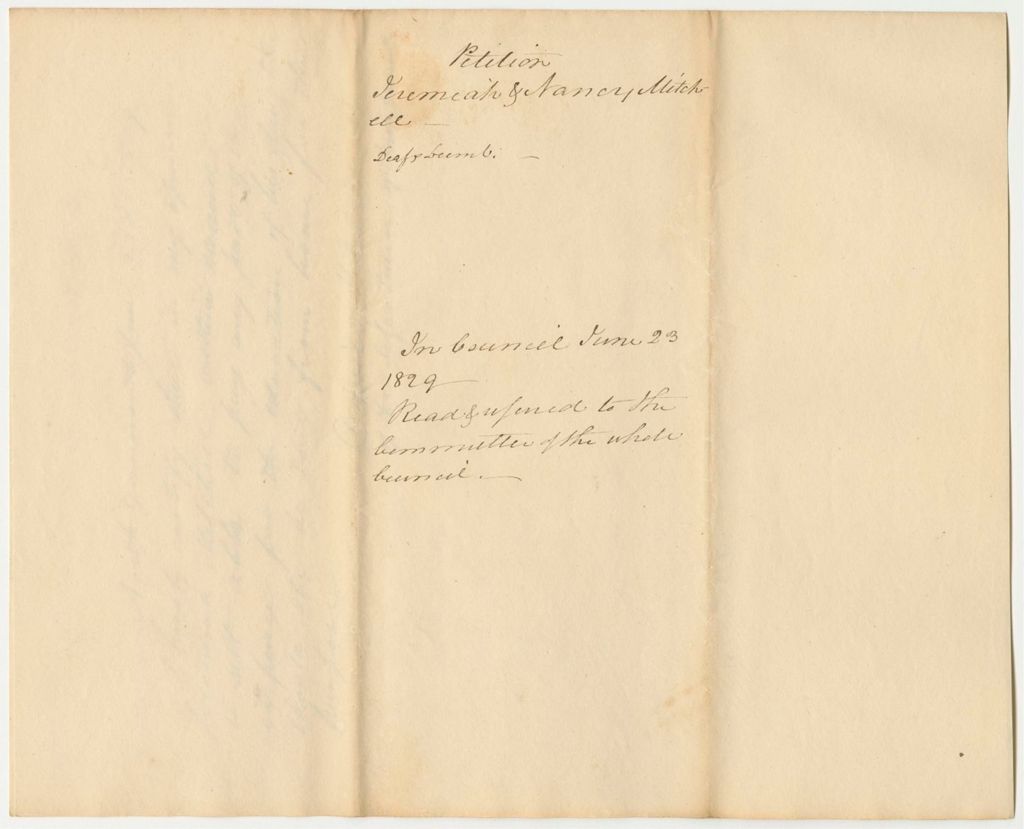 Petition
Jeremiah & Nancy Mitch
ell —
Deaf & Dumb. —
In Council June 23
1829
Read & referred to the
Committee of the whole
Council. —